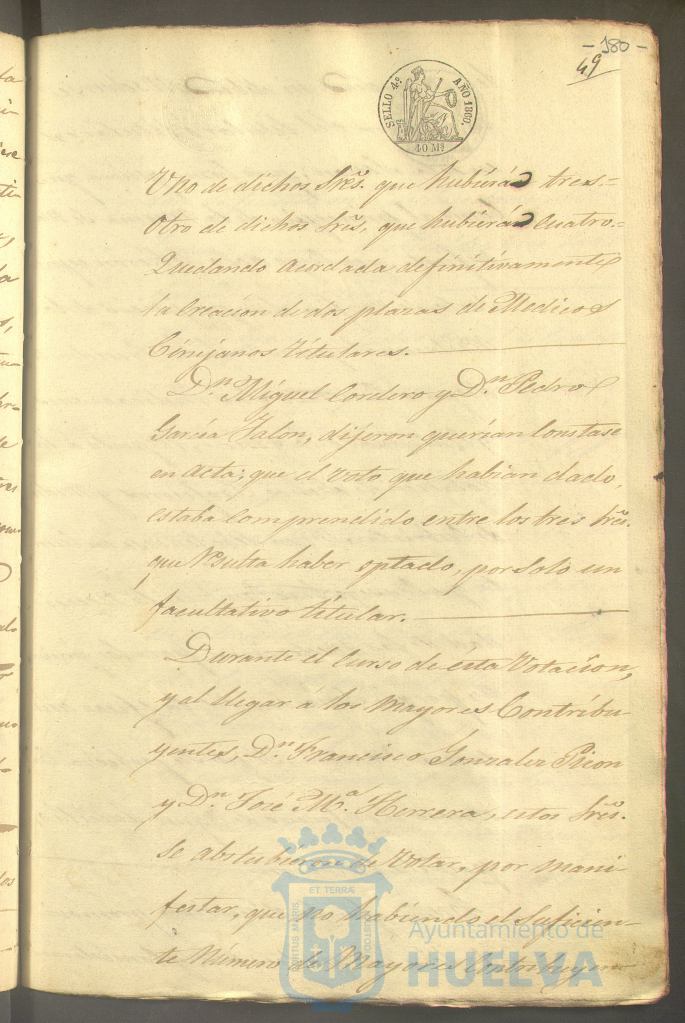 - 180 -
49
SELLO 4º AÑO 1860.
40 Mˢ
Uno de dichos Sreṡ. que hubierán tres.=
Otro de dichos Sreṡ, que hubierán cuatro.=
Quedando acordada definitivamente
la creacion de dos plazas de Medicos
Cirujanos titulares.
Dⁿ Miguel Cordero y Dⁿ Pedro
Garcia Jalon, dijeron querian constase
en acta; que el voto que habian dado,
estaba comprendido entre los tres Sreṡ.
que resulta haber optado, por solo un
facultativo titular.
Durante el curso de esta votacion,
y al llegar á los mayores Contribu-
yentes, Dⁿ Francisco Gonzalez Picon
y Dⁿ José Mᵃ Herrera, estos Sreṡ.
se abstubieron de votar, por mani
festar, que no habiendo el suficien-
te número de Mayores Contribuyen
ET TERRÆ
PORTUS MARIS
CUSTODIA
Ayuntamiento de
HUELVA